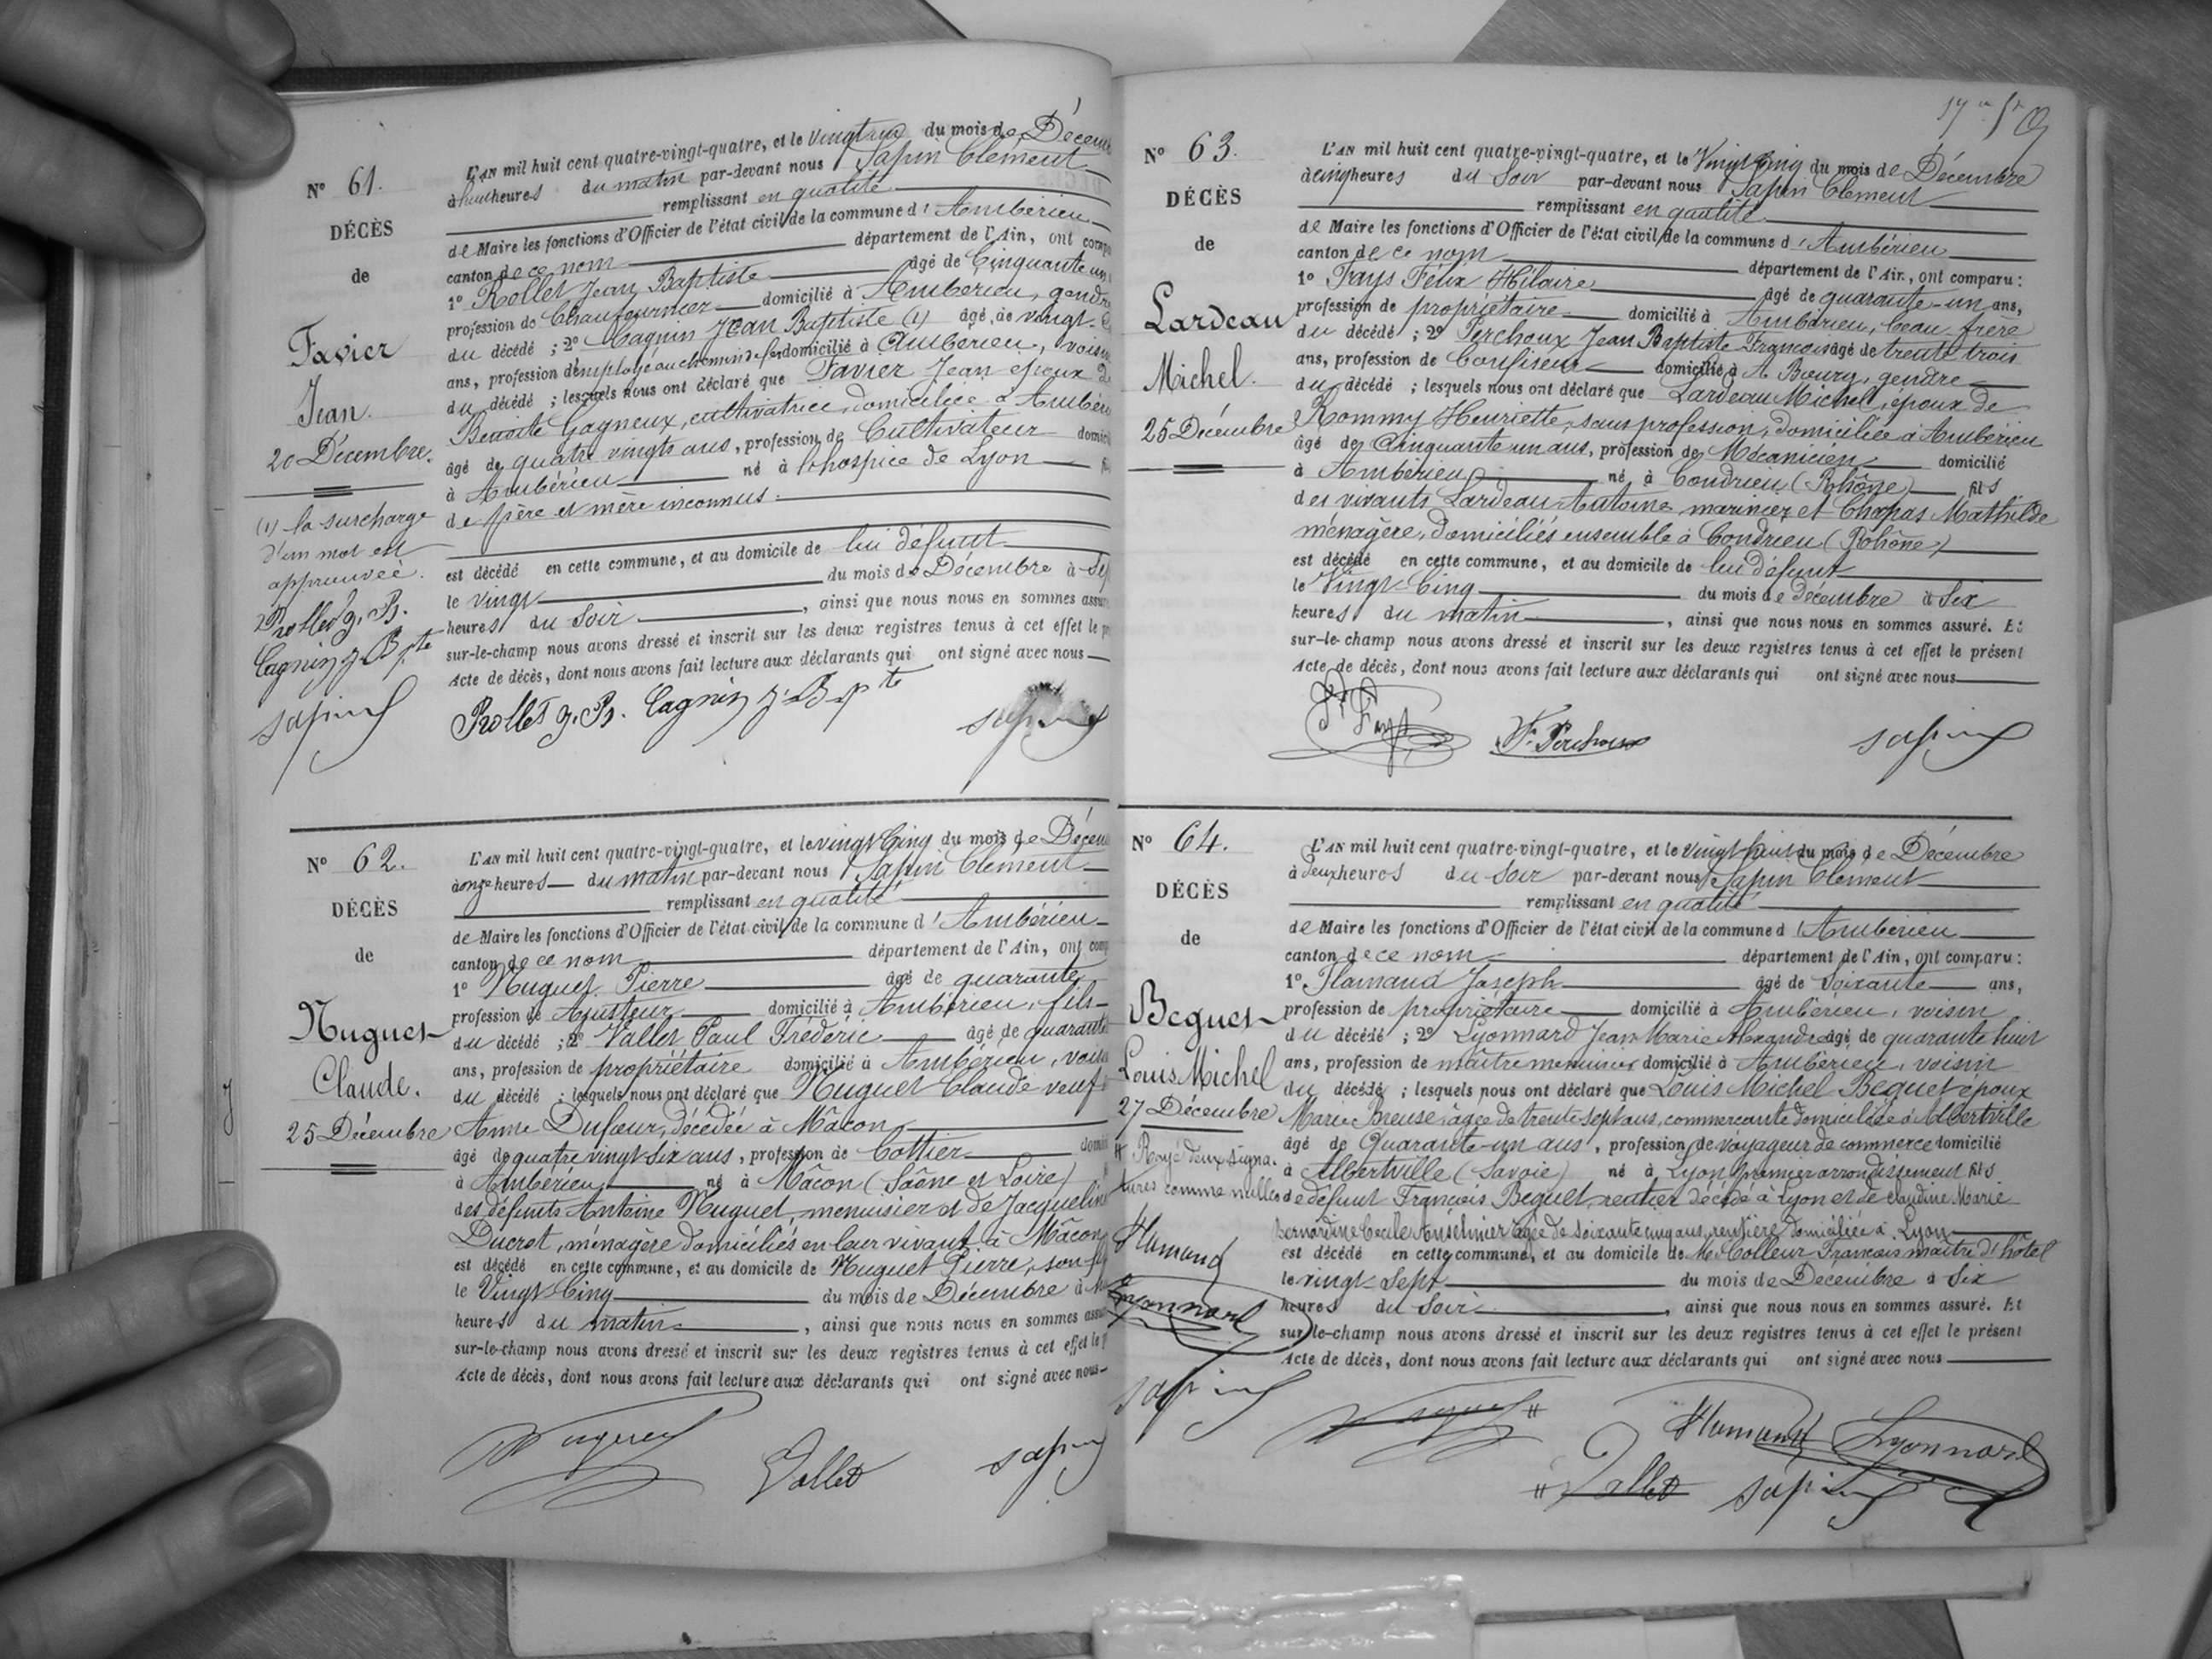 N° 61.
DÉCÈS
de
Favier
Jean.
20 Décembre.
(1) la surcharge
d'un mot est
approuvée.
Rollet J. B.
Cagnin J. Bpte
Sapin
L'AN mil huit cent quatre-vingt-quatre, et le Vingt un du mois de Décem
à huit heures du matin par-devant nous Sapin Clément
remplissant en qualité
de Maire les fonctions d'Officier de l'état civil de la commune d'Ambérieu
canton de ce nom département de l'Ain, ont comp
1° Rollet Jean Baptiste âgé de Cinquante un
profession de Chaufournier domicilié à Ambérieu, gendre
du décédé ; 2° Cagnin Jean Baptiste (1) âgé de vingt-
ans, profession d'employé au chemin de fer domicilié à Ambérieu, voisin
du décédé ; lesquels nous ont déclaré que Favier Jean époux de
Benoite Gagneux, cultivatrice, domiciliée à Ambérieu
âgé de quatre vingts ans, profession de Cultivateur domici
à Ambérieu né à l'hospice de Lyon fi
de père et mère inconnus.
est décédé en cette commune, et au domicile de lui défunt
le vingt du mois de Décembre à sep
heures du soir, ainsi que nous nous en sommes assur
sur-le-champ nous avons dressé et inscrit sur les deux registres tenus à cet effet le pr
Acte de décès, dont nous avons fait lecture aux déclarants qui ont signé avec nous
Rollet J. B. Cagnin J. Bpte Sapin
N° 62.
DÉCÈS
de
Nuguet
Claude.
25 Décembre
L'AN mil huit cent quatre-vingt-quatre, et le vingt Cinq du mois de Décem
à onze heures du matin par-devant nous Sapin Clément
remplissant en qualité
de Maire les fonctions d'Officier de l'état civil de la commune d'Ambérieu
canton de ce nom département de l'Ain, ont comp
1° Nuguet Pierre âgé de quarante
profession de Ajusteur domicilié à Ambérieu, fils
du décédé ; 2° Vallet Paul Frédéric âgé de quarante
ans, profession de propriétaire domicilié à Ambérieu, voisin
du décédé ; lesquels nous ont déclaré que Nuguet Claude veuf
Anne Dufour, décédée à Mâcon
âgé de quatre vingt six ans, profession de Cottier domi
à Ambérieu né à Mâcon (Saône et Loire)
des défunts Antoine Nuguet, menuisier et de Jacqueline
Ducrot, ménagère domiciliés en leur vivant à Mâcon
est décédé en cette commune, et au domicile de Nuguet Pierre, son fils
le Vingt Cinq du mois de Décembre à
heures du matin, ainsi que nous nous en sommes assu
sur-le-champ nous avons dressé et inscrit sur les deux registres tenus à cet effet le p
Acte de décès, dont nous avons fait lecture aux déclarants qui ont signé avec nous
Nuguet Vallet Sapin
N° 63.
DÉCÈS
de
Lardeau
Michel.
25 Décembre
L'AN mil huit cent quatre-vingt-quatre, et le Vingt Cinq du mois de Décembre
à cinq heures du Soir par-devant nous Sapin Clément
remplissant en qaulité
de Maire les fonctions d'Officier de l'état civil de la commune d'Ambérieu
canton de ce nom département de l'Ain, ont comparu :
1° Fays Félix Hilaire âgé de quarante-un ans,
profession de propriétaire domicilié à Ambérieu, beau frère
du décédé ; 2° Perchoux Jean Baptiste François âgé de trente trois
ans, profession de Confiseur domicilié à A Bourg, gendre
du décédé ; lesquels nous ont déclaré que Lardeau Michel, époux de
Rommy Henriette, sans profession, domiciliée à Ambérieu
âgé de Cinquante un ans, profession de Mécanicien domicilié
à Ambérieu né à Condrieu (Rhône) fils
des vivants Lardeau Antoine marinier et Chapas Mathilde
ménagère, domiciliés ensemble à Condrieu (Rhône)
est décédé en cette commune, et au domicile de lui défunt
le Vingt-Cinq du mois de Décembre à Six
heures du matin, ainsi que nous nous en sommes assuré. Et
sur-le-champ nous avons dressé et inscrit sur les deux registres tenus à cet effet le présent
Acte de décès, dont nous avons fait lecture aux déclarants qui ont signé avec nous
Fays F. Perchoux Sapin
N° 64.
DÉCÈS
de
Beguet
Louis Michel
27 Décembre
# Rayé deux signa-
tures comme nulles
Flamand
Lyonnard
Sapin
L'AN mil huit cent quatre-vingt-quatre, et le Vingt huit du mois de Décembre
à deux heures du Soir par-devant nous Sapin Clément
remplissant en qualité
de Maire les fonctions d'Officier de l'état civil de la commune d'Ambérieu
canton de ce nom département de l'Ain, ont comparu :
1° Flamand Joseph âgé de Soixante ans,
profession de propriétaire domicilié à Ambérieu, voisin
du décédé ; 2° Lyonnard Jean Marie Alexandre âgé de quarante huit
ans, profession de maître menuisier domicilié à Ambérieu, voisin
du décédé ; lesquels nous ont déclaré que Louis Michel Beguet époux
Marie âgée de trente sept ans, commerçante domiciliée à Albertville
âgé de Quarante-un ans, profession de voyageur de commerce domicilié
à Albertville (Savoie) né à Lyon premier arrondissement fils
de défunt François Beguet, rentier décédé à Lyon et de Claudine Marie
Bernardine Cécile âgée de soixante cinq ans, rentière domiciliée à Lyon
est décédé en cette commune, et au domicile de Mr Colleur François maître d'hôtel
le vingt-Sept du mois de Décembre à Six
heures du Soir, ainsi que nous nous en sommes assuré. Et
sur-le-champ nous avons dressé et inscrit sur les deux registres tenus à cet effet le présent
Acte de décès, dont nous avons fait lecture aux déclarants qui ont signé avec nous
Nuguet # Flamand Lyonnard
# Vallet Sapin